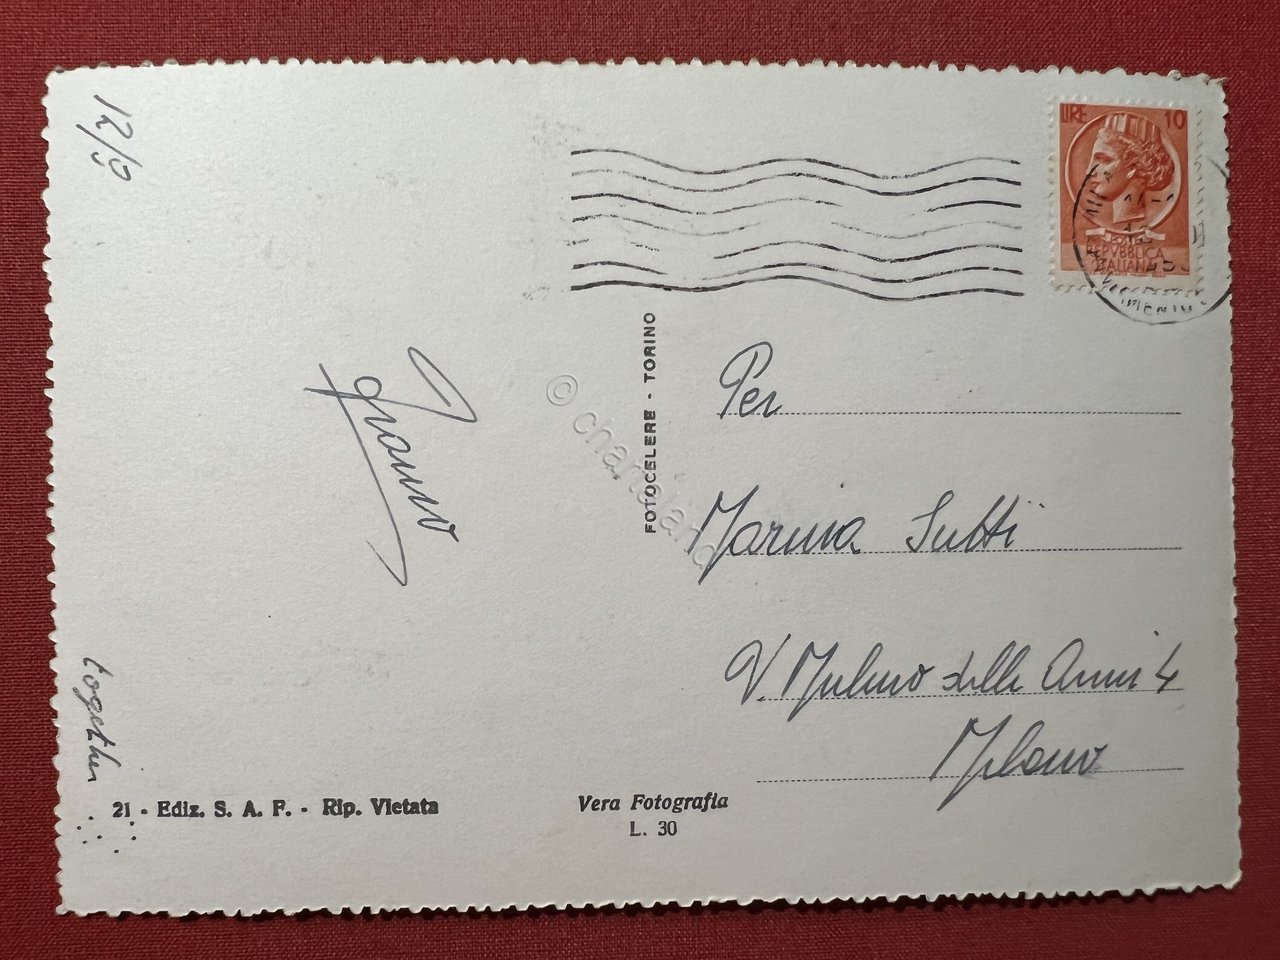 12/9
LIRE 10
REPVBBLICA
ITALIANA
FOTOCELERE - TORINO
© chartaland
Per
Marina Sutti
V. Mulino delle Armi 4
Milano
together
21 - Ediz. S. A. F. - Rip. Vietata
Vera Fotografia
L. 30